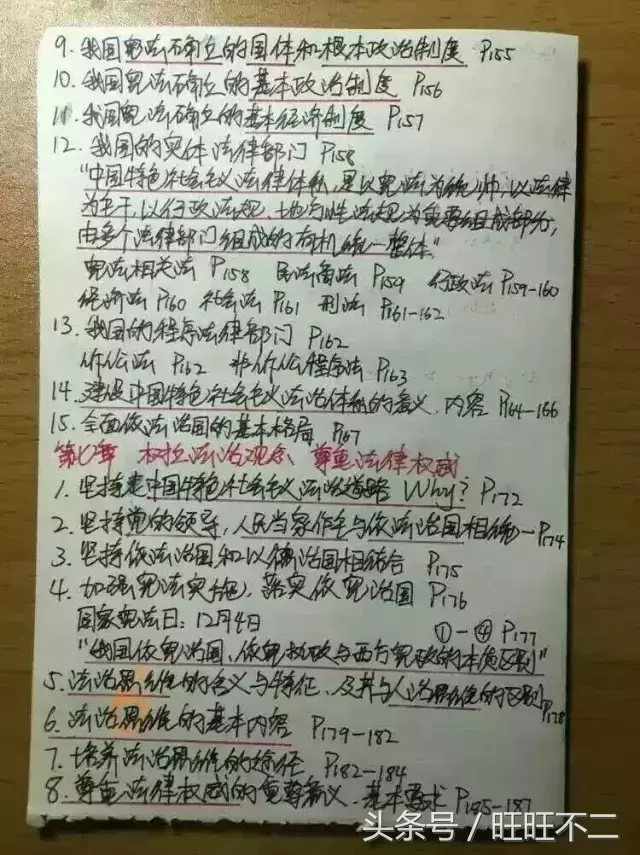 9. 我国宪法确立的国体和根本政治制度 P155
10. 我国宪法确立的基本政治制度 P156
11. 我国宪法确立的基本经济制度 P157
12. 我国的实体法律部门 P158
"中国特色社会主义法律体系,是以宪法为统帅,以法律
为主干,以行政法规、地方性法规为重要组成部分,
由多个法律部门组成的有机统一整体"
宪法相关法 P158 民法商法 P159 行政法 P159-160
经济法 P160 社会法 P161 刑法 P161-162
13. 我国的程序法律部门 P162
诉讼法 P162 非诉讼程序法 P163
14. 建设中国特色社会主义法治体系的意义、内容 P164-166
15. 全面依法治国的基本格局 P167
第七章 树立法治观念 尊重法律权威
1. 坚持走中国特色社会主义法治道路 Why? P172
2. 坚持党的领导,人民当家作主与依法治国相统一 P174
3. 坚持依法治国和以德治国相结合 P175
4. 加强宪法实施,落实依宪治国 P176
国家宪法日:12月4日
①-④ P177
"我国依宪治国、依宪执政与西方宪政的本质区别"
5. 法治思维的含义与特征,及其与人治思维的区别 P178
6. 法治思维的基本内容 P179-182
7. 培养法治思维的途径 P182-184
8. 尊重法律权威的重要意义、基本要求 P185-187
头条号 / 旺旺不二